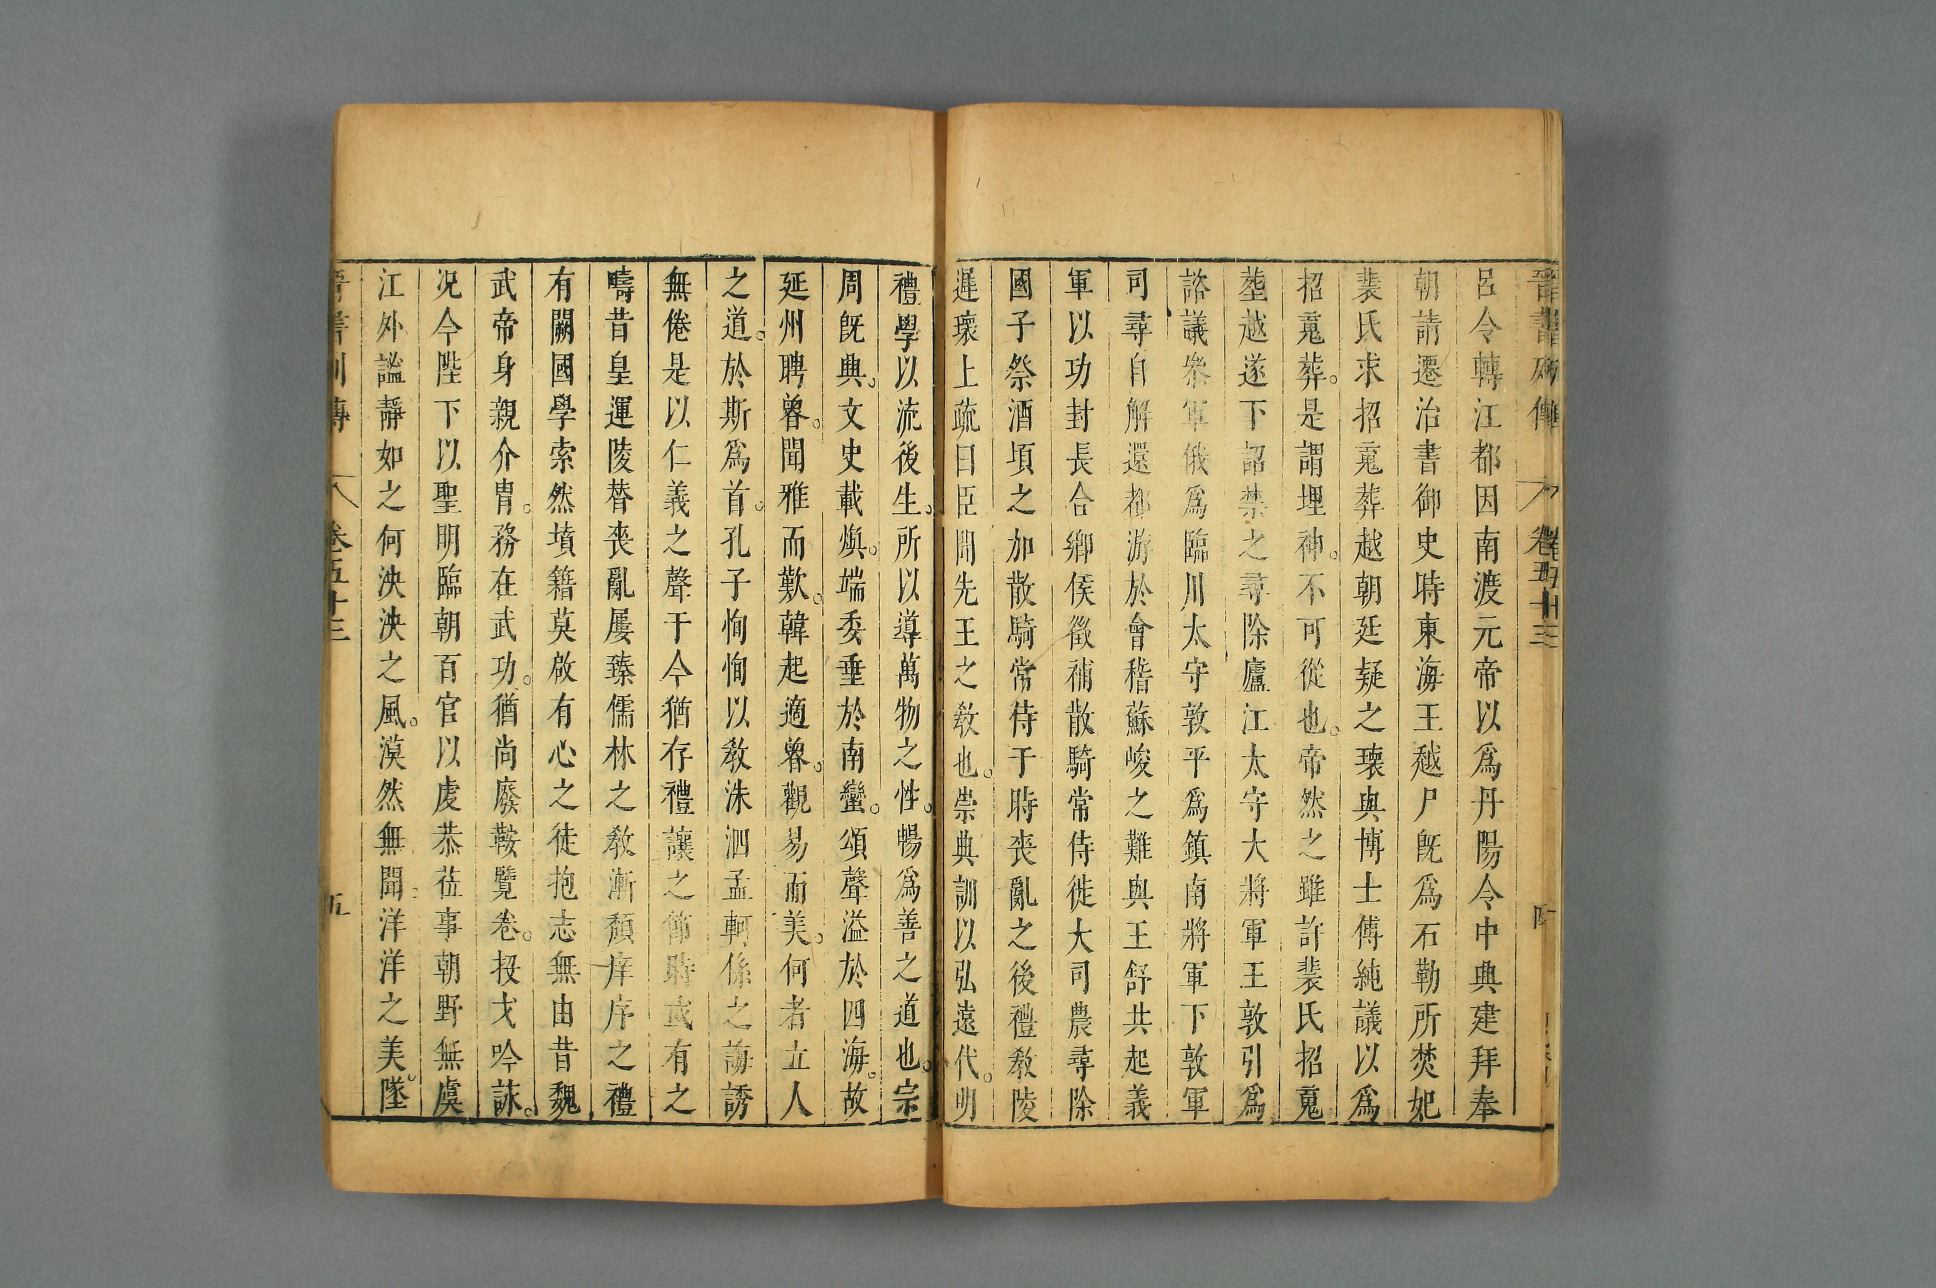 呂令轉江都因南渡元帝以爲丹陽令中興建拜奉
朝請遷治書御史時東海王越尸旣爲石勒所焚妃
裴氏求招䰟葬越朝廷疑之瓌與博士傅純議以爲
招䰟葬是謂埋神不可從也帝然之雖許裴氏招䰟
葬越遂下詔禁之尋除廬江太守大將軍王敦引爲
諮議參軍俄爲臨川太守敦平爲鎮南將軍卞敦軍
司尋自解還都游於會稽蘇峻之難與王舒共起義
軍以功封長合鄉侯徵補散騎常侍徙大司農尋除
國子祭酒頃之加散騎常待于時喪亂之後禮敎陵
遲瓌上疏曰臣聞先王之敎也崇典訓以弘遠代明
禮學以流後生所以導萬物之性暢爲善之道也宗
周旣興文史載煥端委垂於南蠻頌聲溢於四海故
延州聘魯聞雅而歎韓起適魯觀易而美何者立人
之道於斯爲首孔子恂恂以敎洙泗孟軻係之誨誘
無倦是以仁義之聲于今猶存禮讓之節時或有之
疇昔皇運陵替喪亂屢臻儒林之敎漸頹庠序之禮
有闕國學索然墳籍莫啟有心之徒抱志無由昔魏
武帝身親介冑務在武功猶尚廢鞍覽卷投戈吟詠
况今陛下以聖明臨朝百官以虔恭莅事朝野無虞
江外謐靜如之何泱泱之風漠然無聞洋洋之美墜
晉書列傳 卷五十三 五